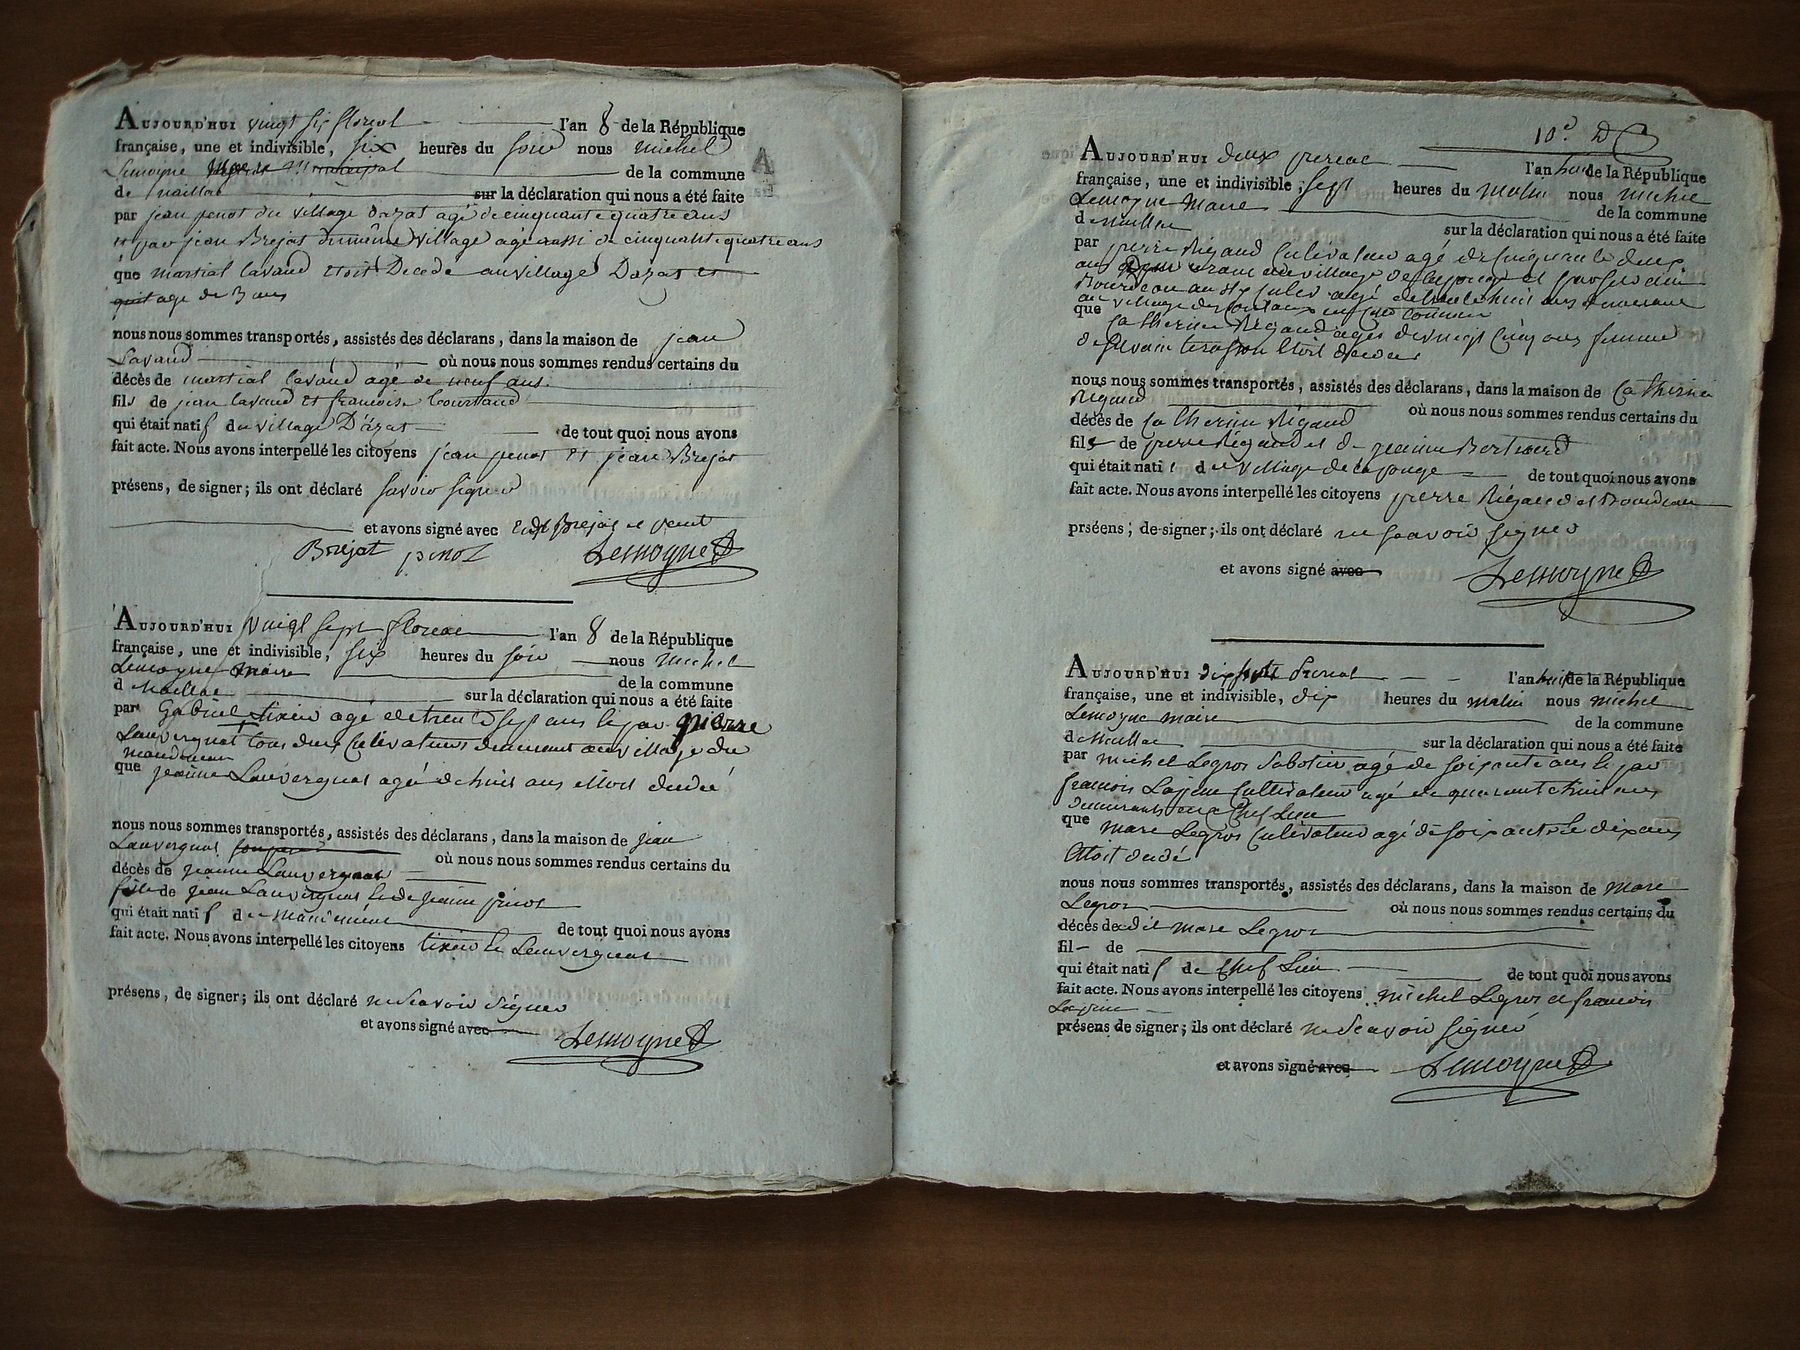 AUJOURD'HUI vingt six floreal l'an 8 de la République
française, une et indivisible, six heures du soir nous michel
Lemoyne de la commune
de naillac sur la déclaration qui nous a été faite
par jean penot du village dazat agé de cinquante quatre ans
et par jean Brejat du même village agé aussi de cinquante quatre ans
que martial lavaud etoit Decede au village Dazat et
age de 9 ans
nous nous sommes transportés, assistés des déclarans, dans la maison de jean
Lavaud où nous nous sommes rendus certains du
décès de martial lavaud agé de neuf ans
fils de jean lavaud et francoise Courtaud
qui était natif du village D'azat de tout quoi nous avons
fait acte. Nous avons interpellé les citoyens jean penot et jean Brejat
présens, de signer; ils ont déclaré savoir signer
et avons signé avec Brejat et penot
Brejat penot Lemoyne
AUJOURD'HUI vingt sept floreal l'an 8 de la République
française, une et indivisible, six heures du soir nous michel
Lemoyne maire de la commune
d naillac sur la déclaration qui nous a été faite
par Gabriel tixier agé de trente sept ans et par pierre
Lauvergnat tous deux Cultivateurs demeurant au village du
que jeanne Lauvergnat agé de huit ans etoit decedé
nous nous sommes transportés, assistés des déclarans, dans la maison de jean
Lauvergnat où nous nous sommes rendus certains du
décès de jeanne Lauvergnat
fille de jean Lauvergnat et de jeanne
qui était natif de de tout quoi nous avons
fait acte. Nous avons interpellé les citoyens tixier et Lauvergnat
présens, de signer; ils ont déclaré ne scavoir signer
et avons signé avec Lemoyne
10e
AUJOURD'HUI deux prerial l'an huit de la République
française, une et indivisible, sept heures du matin nous michel
Lemoyne Maire de la commune
d naillac sur la déclaration qui nous a été faite
par pierre Rigaud Cultivateur agé de cinquante deux
ans au village de lapouge et
Bourdeau agé de trente huit ans demeurant
au village
que Catherine Rigaud agés de vingt Cinq ans femme
de silvain etoit decedee
nous nous sommes transportés, assistés des déclarans, dans la maison de Catherine
Rigaud où nous nous sommes rendus certains du
décès de Catherine Rigaud
fils de pierre Rigaud et de jeanne Bertrand
qui était nati de village de lapouge de tout quoi nous avons
fait acte. Nous avons interpellé les citoyens pierre Rigaud et Bourdeau
prséens, de signer; ils ont déclaré ne scavoir signer
et avons signé avec Lemoyne
AUJOURD'HUI dix huit Prerial l'an huit de la République
française, une et indivisible, dix heures du matin nous michel
Lemoyne maire de la commune
de Naillac sur la déclaration qui nous a été faite
par michel Legros Sabotier agé de soixante ans et par
francois Lajoine Cultivateur agé de quarante huit ans
demeurants au Chef Lieu
que marc Legros Cultivateur agé de soixante et dix ans
etoit decedé
nous nous sommes transportés, assistés des déclarans, dans la maison de marc
Legros où nous nous sommes rendus certains du
décès de dit marc Legros
fil de
qui était natif de Chef Lieu de tout quoi nous avons
fait acte. Nous avons interpellé les citoyens michel Legros et francois
présens de signer; ils ont déclaré ne scavoir signer
et avons signé avec Lemoyne